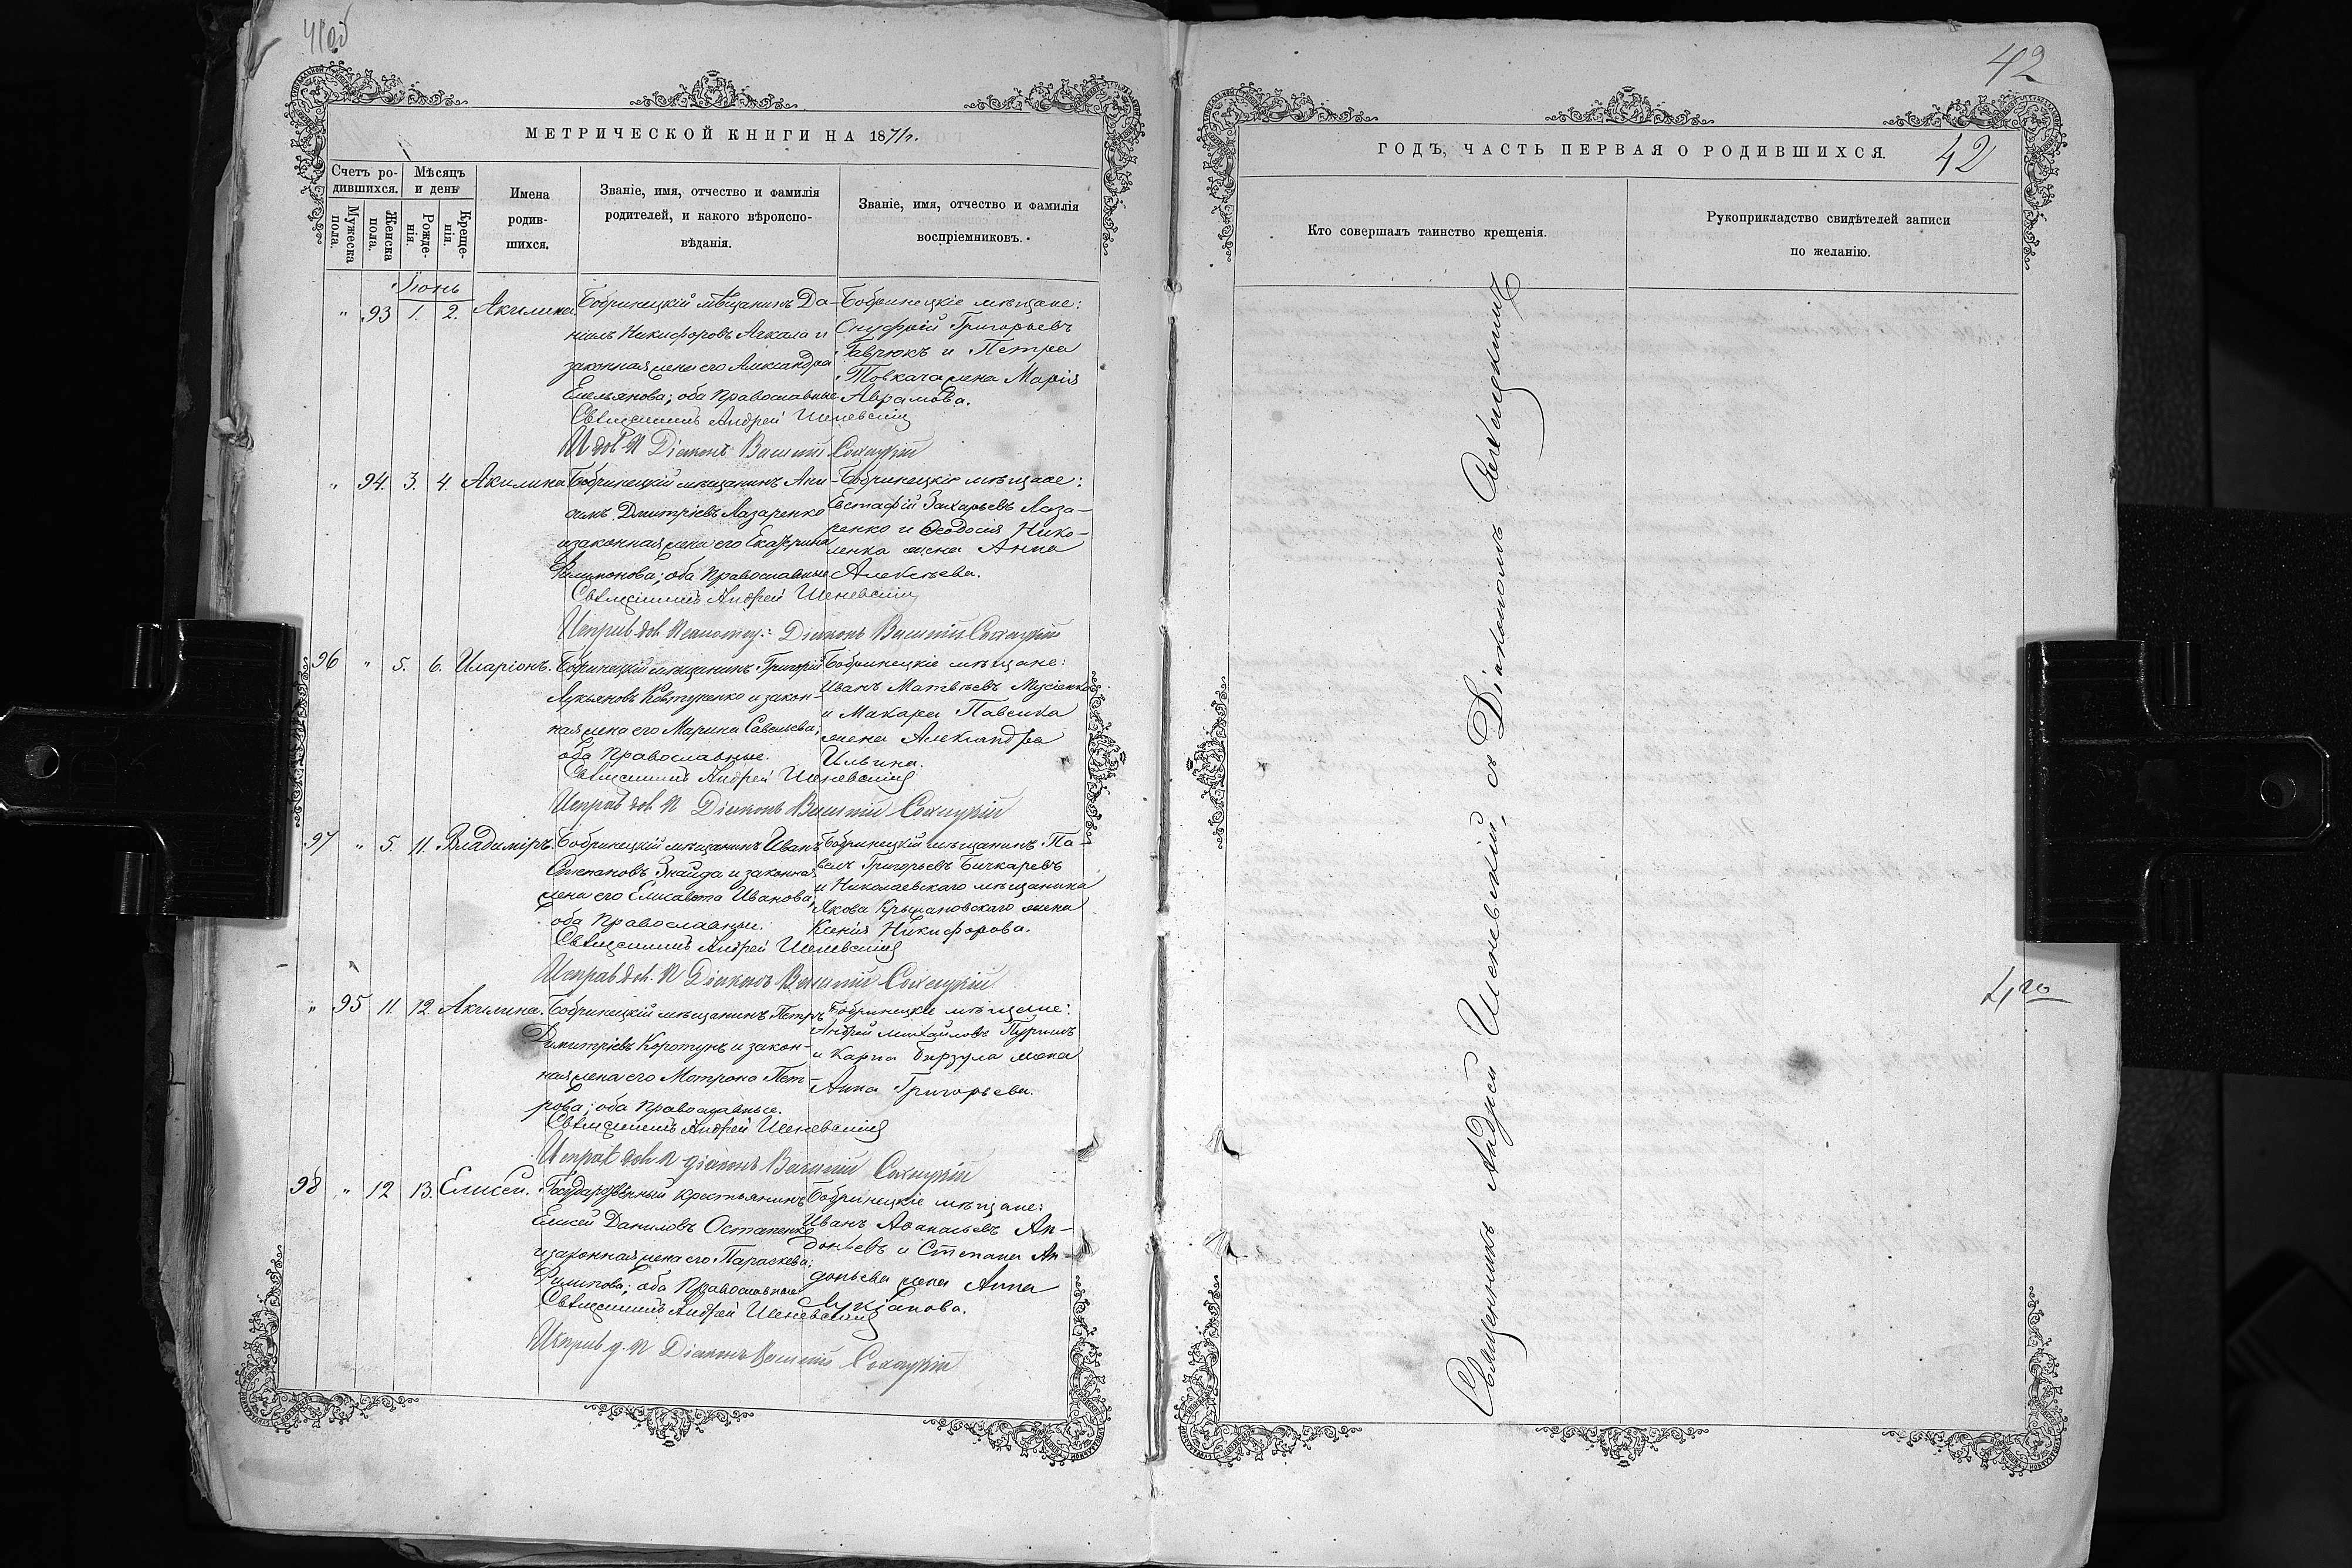 41об
МЕТРИЧЕСКОЙ КНИГИ НА 1871/г.
Счетъ ро-
дившихся.
Мѣсяцъ
и день
Мужеска
пола.
Женска
пола.
Рожде-
нія.
Креще-
нія.
Имена
родив-
шихся.
Званіе, имя, отчество и фамилія
родителей, и какого вѣроиспо-
вѣданія.
Званіе, имя, отчество и фамилія
воспріемниковъ.
Іюнь
" 93 1. 2. Акилина
Бобринецкій мѣщанинъ Да-
ніилъ Никифоровъ Аткала и
законная жена его Александра
Емельянова; оба Православные
Бобринецкіе мѣщане:
Онуфрій Григорьевъ
Гаврюкъ и Петра
Товкача жена Марія
Аврамова.
Священникъ Андрей Шеневскій
И дол П Діаконъ Василій Сохацкій
" 94. 3. 4. Акилина
Бобринецкій мѣщанинъ Ани-
симъ Дмитріевъ Лазаренко
и законная жена его Екатерина
Филимонова; оба Православные
Бобринецкіе мѣщане:
Евстафій Захарьевъ Лаза-
ренко и Ѳеодосія Нико-
ленка жена Анна
Алексѣева.
Священникъ Андрей Шеневскій
Исправ дол Псаломщ: Діаконъ Василій Сохацкій
96 " 5. 6. Иларіонъ.
Бобринецкій мѣщанинъ Григорій
Лукьяновъ Ковтуненко и закон-
ная жена его Марина Савельева;
оба Православные.
Бобринецкіе мѣщане:
Иванъ Матвѣевъ Мусіенко
и Макара Павенка
жена Александра
Ильина.
Священникъ Андрей Шеневскій
Исправ дол П Діаконъ Василій Сохацкій
97 " 5. 11. Владиміръ.
Бобринецкій мѣщанинъ Иванъ
Степановъ Знайда и законная
жена его Елисавета Иванова;
оба Православные.
Бобринецкій мѣщанинъ Па-
велъ Григорьевъ Бичкаревъ
и Николаевскаго мѣщанина
Якова Крыжановскаго жена
Ксенія Никифорова.
Священникъ Андрей Шеневскій
Исправ дол. П Діаконъ Василій Сохацкій
" 95 11. 12. Акилина.
Бобринецкій мѣщанинъ Петръ
Димитріевъ Коротунъ и закон-
ная жена его Мотрона Пет-
рова; оба Православные.
Бобринецкіе мѣщане:
Андрей Михайловъ Пуришъ
и Карпа Бирзула жена
Анна Григорьева.
Священникъ Андрей Шеневскій
Исправ дол П діаконъ Василій Сохацкій
98 " 12 13. Елисей.
Государственный крестьянинъ
Елисей Даниловъ Остапенко
и законная жена его Параскева
Филипова; оба Православные
Бобринецкіе мѣщане:
Иванъ Аѳанасьевъ Ан-
доньевъ и Степана Ан-
доньева жена Анна
Лукіанова.
Священникъ Андрей Шеневскій
Исправ д. П Діаконъ Василій Сохацкій
42
ГОДЪ, ЧАСТЬ ПЕРВАЯ О РОДИВШИХСЯ.
42
Кто совершалъ таинство крещенія.
Рукоприкладство свидѣтелей записи
по желанію.
Священникъ Андрей Шеневскій, съ Діакономъ Сохацкимъ